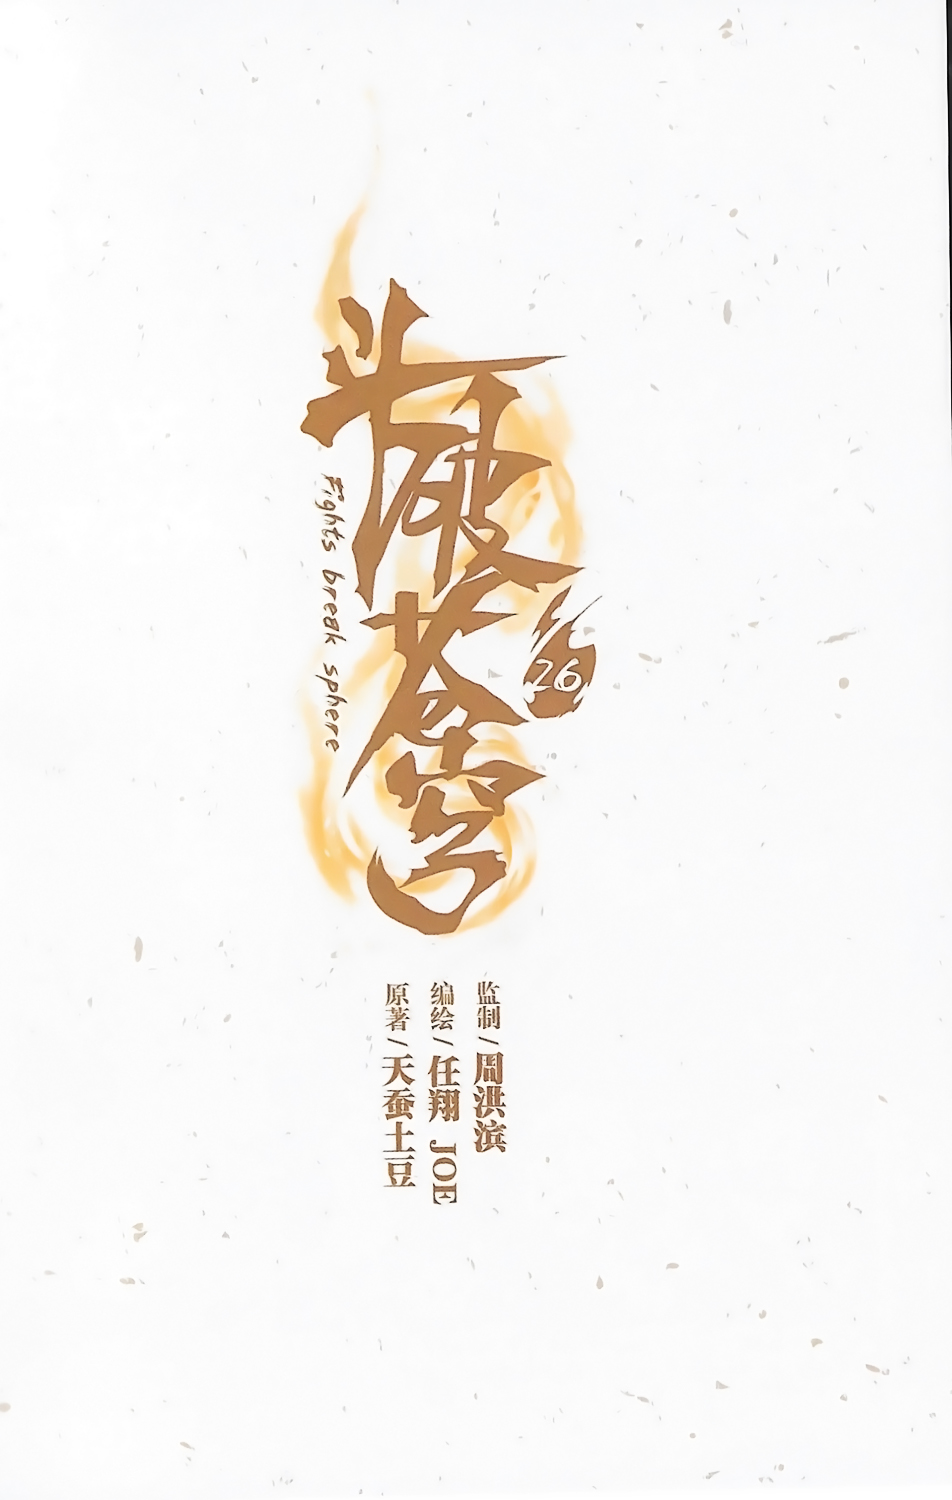 斗破苍穹
Fights break sphere
26
监制/周洪滨
编绘/任翔 JOE
原著/天蚕土豆